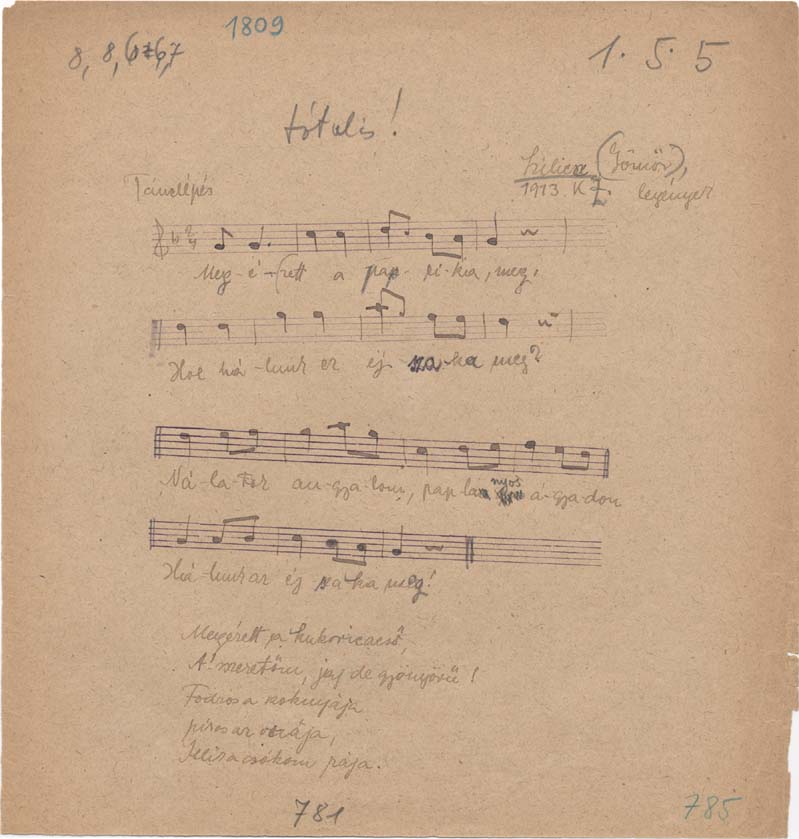 1809
8, 8,
1. 5. 5
tótulis!
Szilice (Gömör),
Tánclépés
1913. K Z. legények
Meg-é-rett a pap-ri-kia, meg,
Hol há-lunk ez éj sza-ka meg?
Ná-la-tok an-gya-lom, pap-la nyos á-gya-don
Há-lunk az éj sza ka meg!
Megérett a kukoricacső,
A' szeretőm, jaj de gyönyörű!
Fodros a szoknyája
piros az orcája,
Illik a csókom rája.
781
785